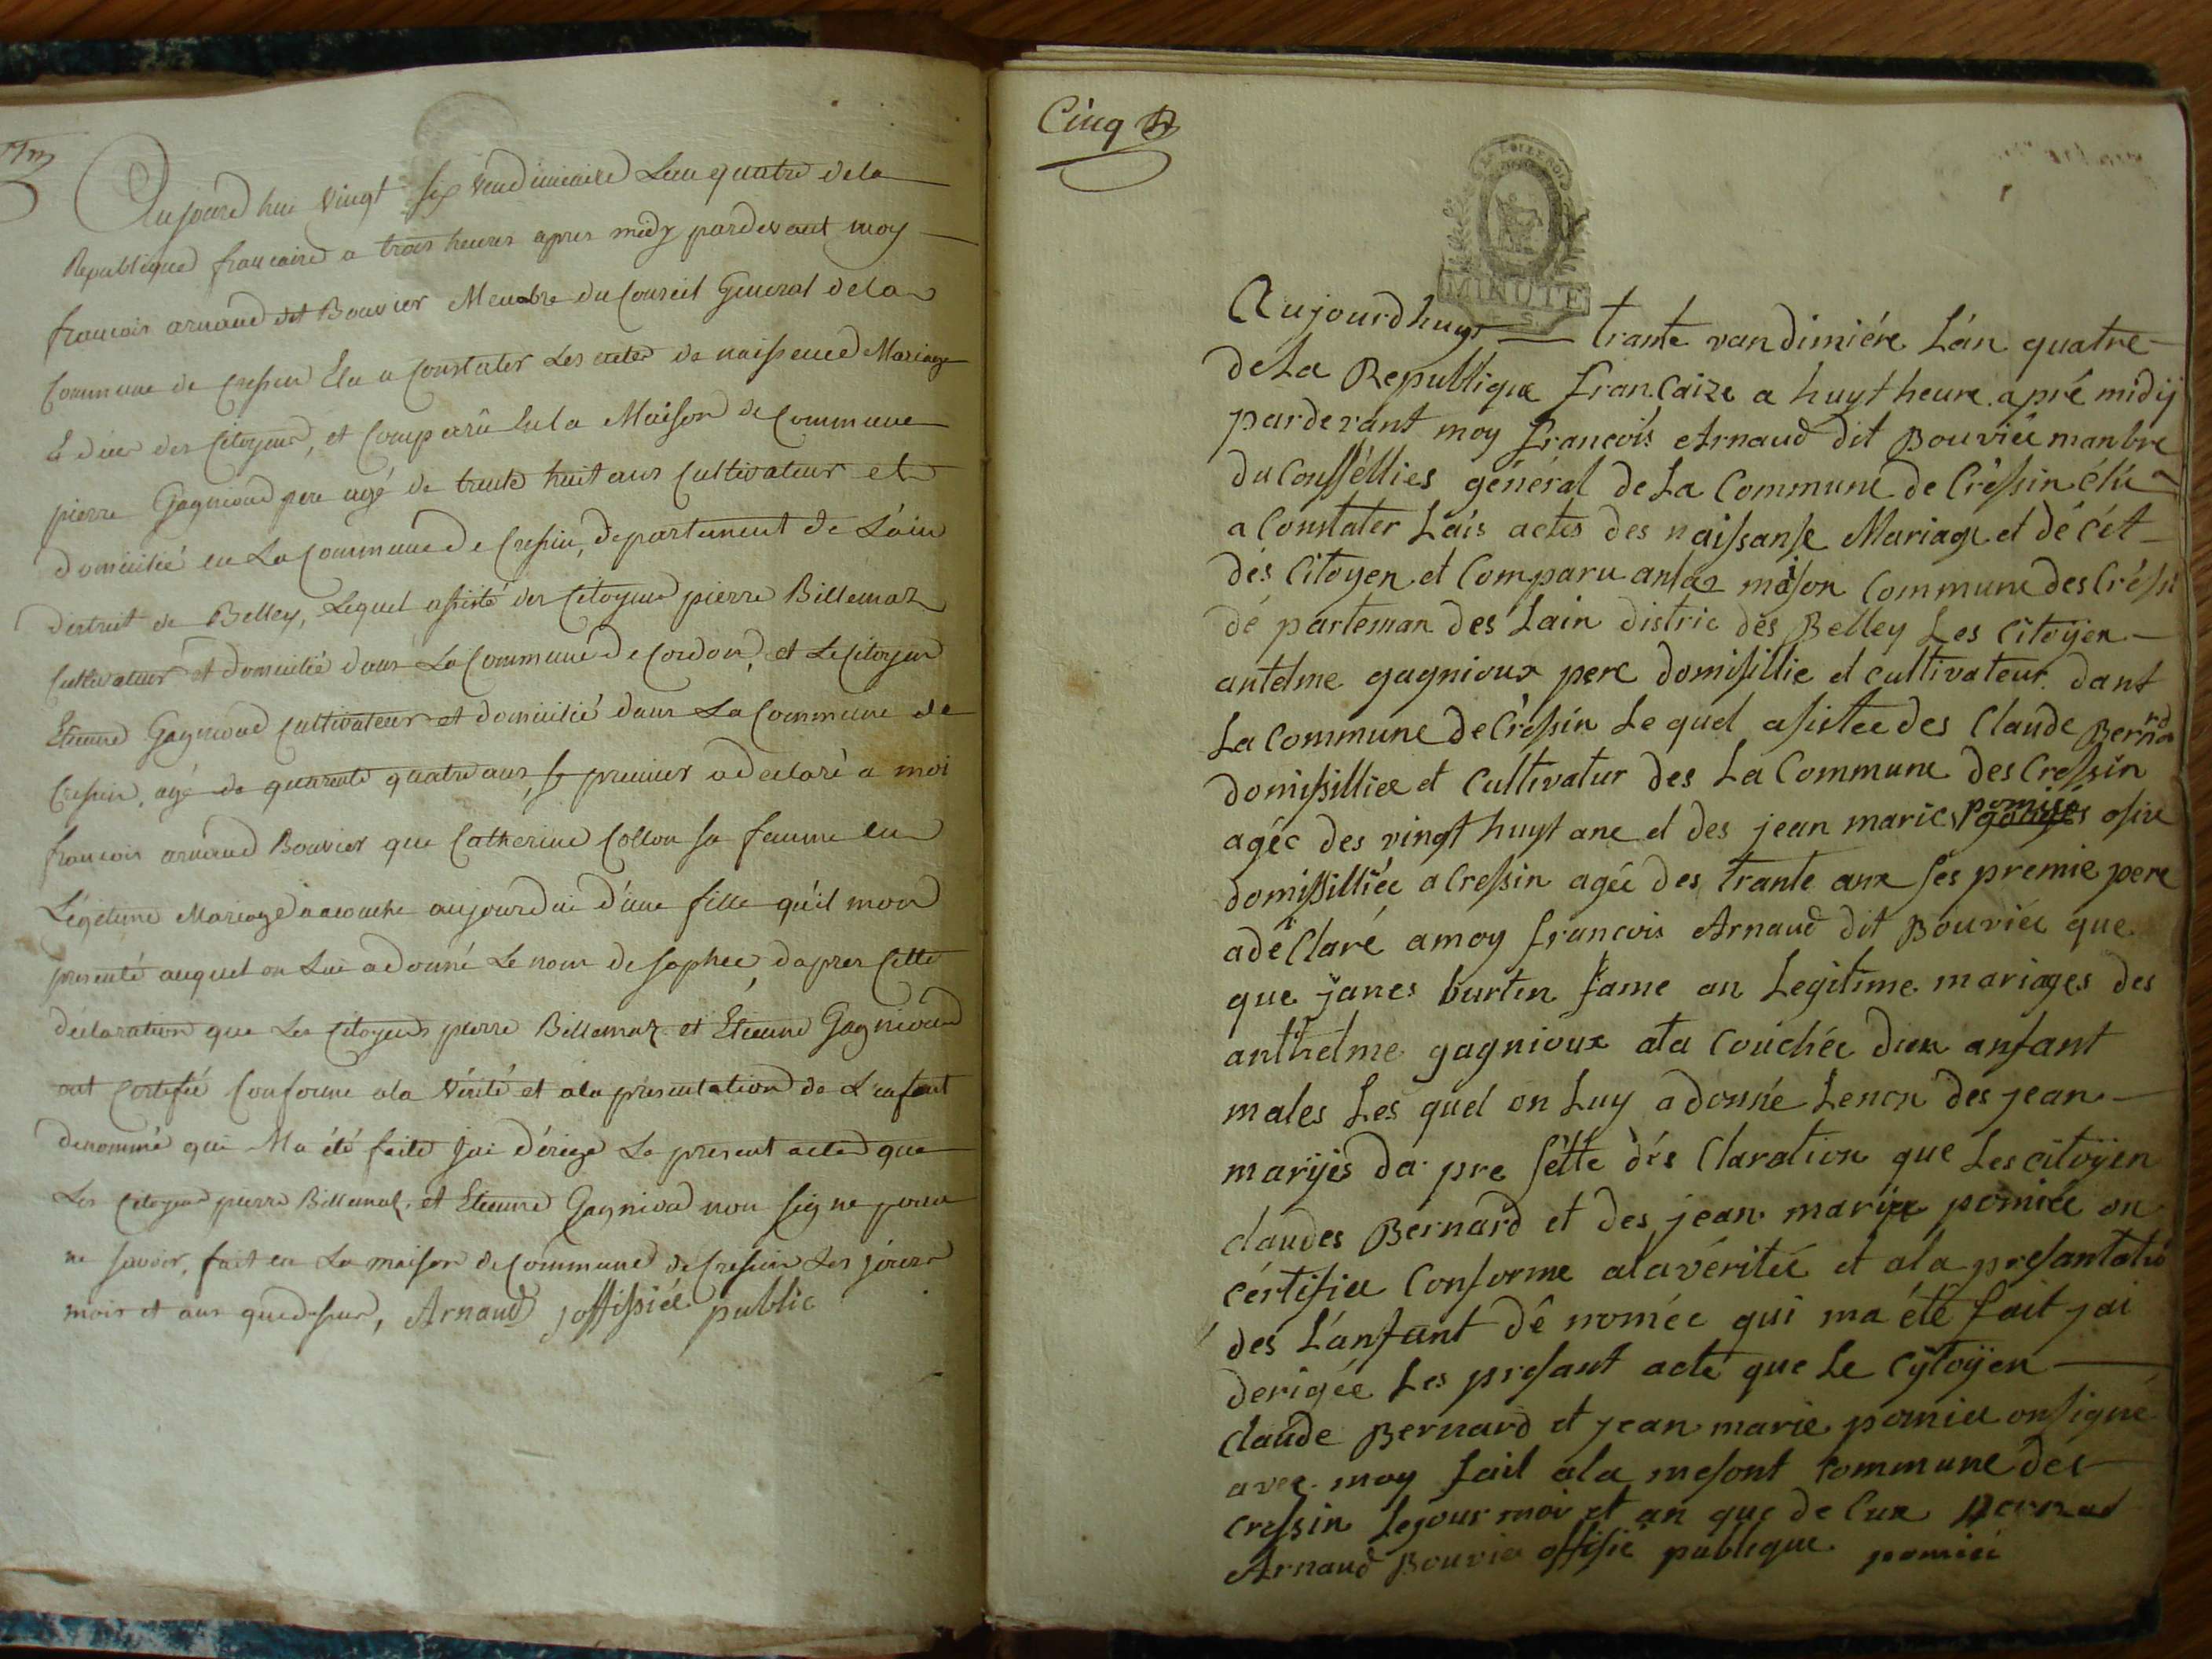 Aujourdhui vingt six vendimiaire Lan quatre dela
Republique francaise a trois heures apres midy pardevant moy
francois arnaud dit Bouvier Membre du Conseil General dela
Commune de Cressin Elu a Constater Les actes de naissence Mariage
& des Citoyens, et Comparû Sula Maison de Commune
pierre Gagnioud pere agé de trente huit ans Cultivateur et
domicilié en La Commune de Cressin, departement de L'ain
district de Belley, Lequel assisté des Citoyens pierre Billemaz
Cultivateur et domicilié dans La Commune de Cordon, et Le Citoyen
Etienne Gagnioud Cultivateur et domicilié dans La Commune de
Cressin, agé de quarente quatre ans, premier a declaré a moi
francois arnaud Bouvier que Catherine Collon sa famme en
Légitime Mariage a acouche aujourdui d'une fille qu'il mon
presenté auquel on Lui a donné Le nom de sophie, dapres Cette
déclaration que Les Citoyens pierre Billemaz et Etienne Gagnioud
ont Certifié Conforme ala vérité et ala présentation de L'enfant
denommé qui Ma été faite jai dérigé Le present acte que
Les Citoyens pierre Billemaz, et Etienne Gagnioud non signe pour
ne savoir, fait en La maison de Commune de Cressin Les jours
mois et ans que dessus, Arnaud joffissiée public
Cinq
MINUTE
Aujourdhuy trante vandimiére L'án quatre
de La Republique francaize a huyt heure apré midij
pardevant moy francois Arnaud dit Bouviée manbre
du Consséllies général de La Commune de Créssin élu
a Constater Lais actes des naissansse Mariage et décét
dés Citoyen et Comparu anla mason Commune des Créssi
dé parteman des Lain distric dés Belley Les Citoyen
antelme gagnioux pere domisillie et cultivateur dant
La Commune de Créssin Le quel asistee des Claude Bernard
domissilliee et Cultivatur des La Commune des Cressin
agéc des vingt huyt ane et des jean maries pomiée
domissilliée a Cressin agée des trante ans ses premie pere
adéClaré amoy francois Arnaud dit Bouviée que
que janes burten fame an Legitime mariages des
anthelme gagnioux ala Couichée dun anfant
males Les quel on Luy a donné Lenon des jean
maryés da pre sette dés Claration que Les citoyen
claudes Bernard et des jean mariee pomiée on
cértifiee Conforme alavéritée et ala presantatio
des L'anfant dé nomée qui ma été fait jai
derigée Les presant acte que Le Cytoyen
claude Bernard et jean marie pomiee onsigné
avec moy fait ala mesont Commune dés
cressin Lejour moi et an que de Cux Bernad
Arnaud Bouvia offisie publique pomiéi